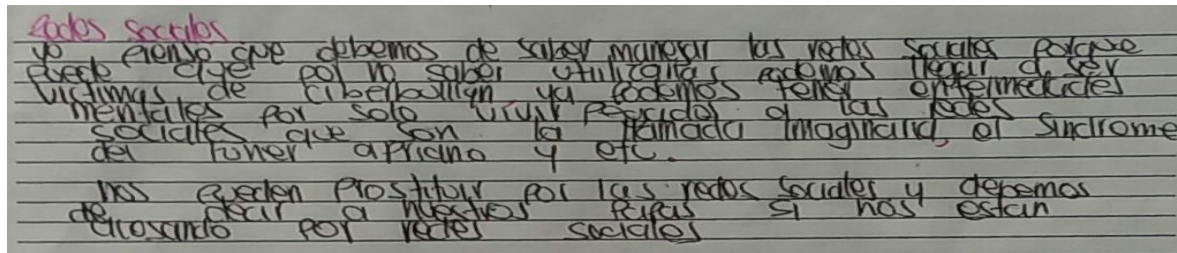 Redes sociales
yo pienso que debemos de saber manejar las redes sociales porque
puede que por no saber utilizarlas podemos llegar a ser
victimas de ciberbullan ya podemos tener enfermedades
mentales por solo vivir pegados a las redes
sociales que son la llamada imaginaria, el Sindrome
del tuner apriano y etc.
nos pueden prostituir por las redes sociales y debemos
de decir a nuestros papas si nos estan
acosando por redes sociales